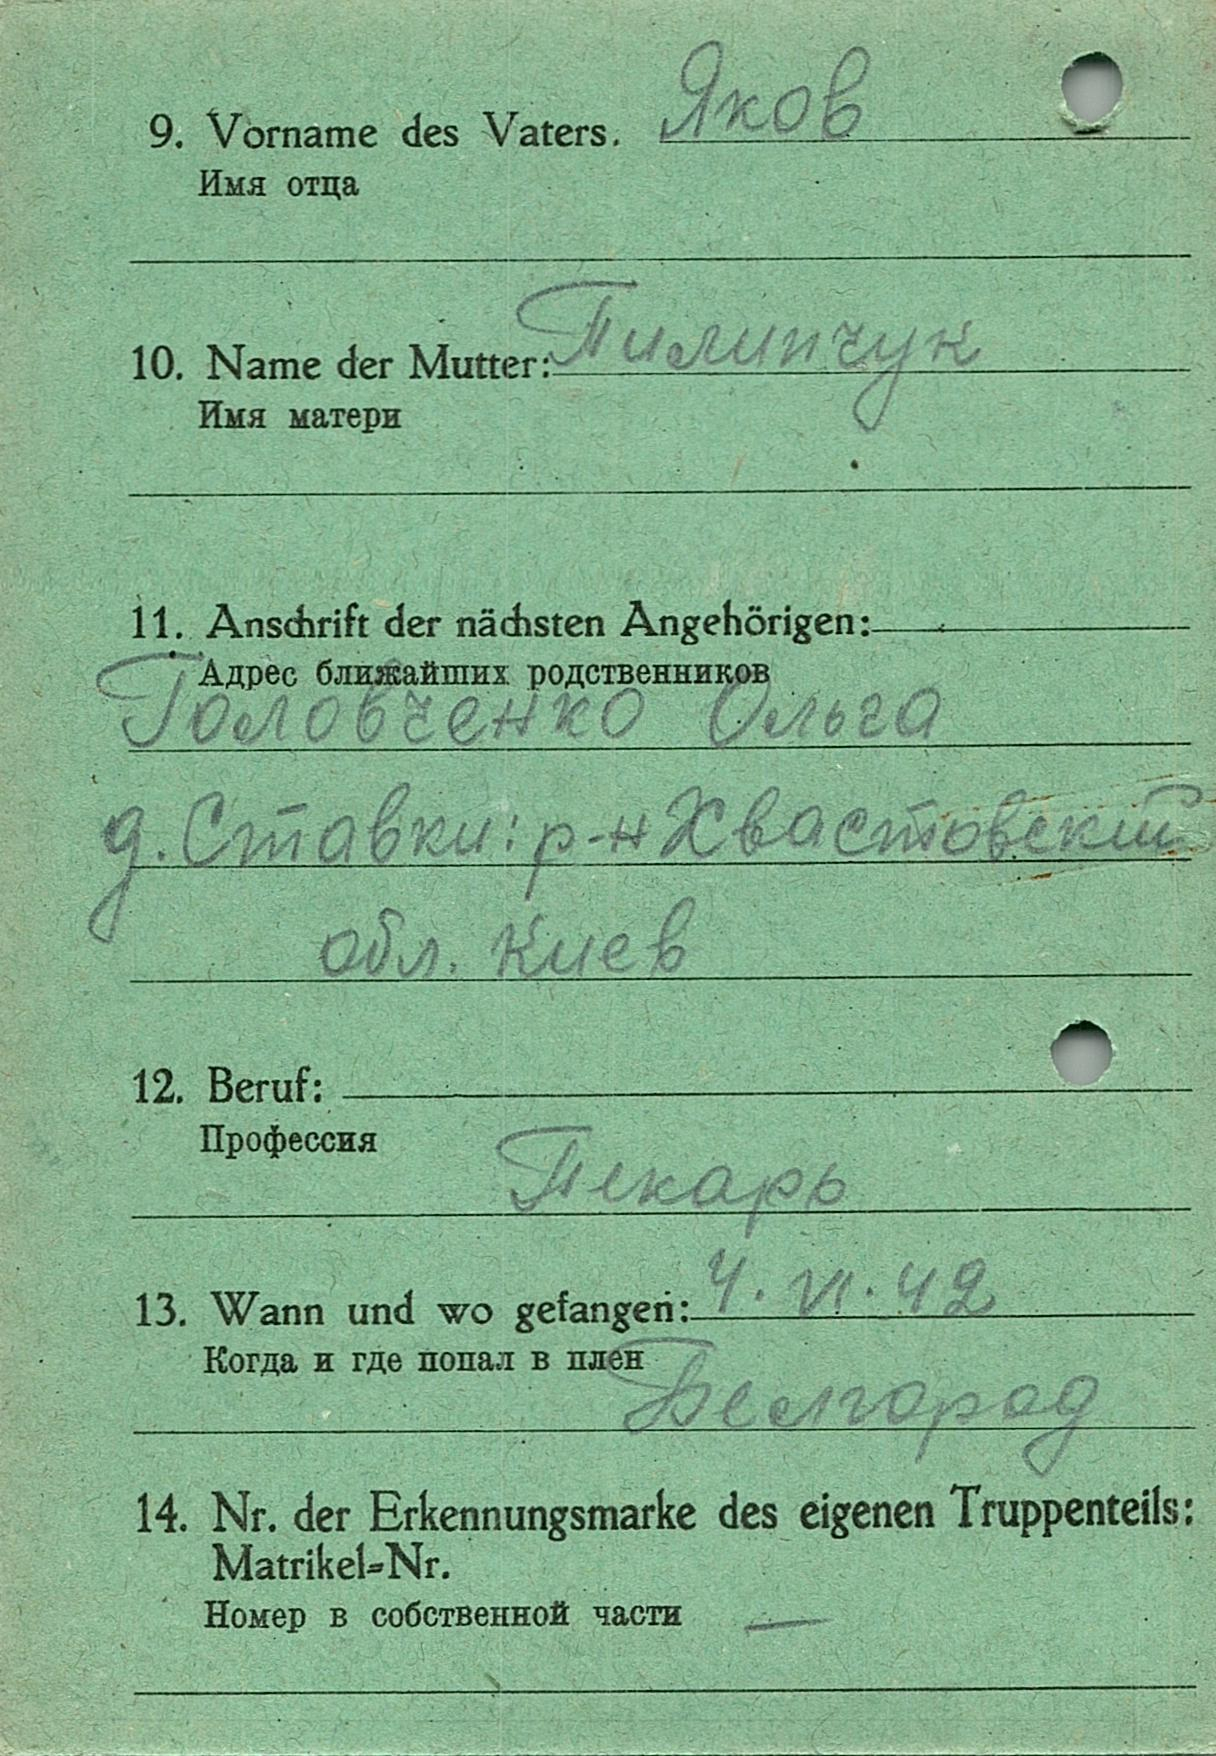 9. Vorname des Vaters. Яков
Имя отца
10. Name der Mutter: Пилипчук
Имя матери
11. Anschrift der nächsten Angehörigen:
Адрес ближайших родственников
Головченко Ольга
д. Ставки: р-н Хвастовский
обл. Киев
12. Beruf:
Профессия
Пекарь
13. Wann und wo gefangen: 4. VI. 42
Когда и где попал в плен
Белгород
14. Nr. der Erkennungsmarke des eigenen Truppenteils:
Matrikel=Nr.
Номер в собственной части —